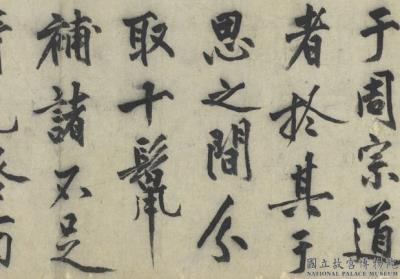 于周宗道
者於其于
思之間分
取十鬛
補諸不足
國立故宮博物院
NATIONAL PALACE MUSEUM